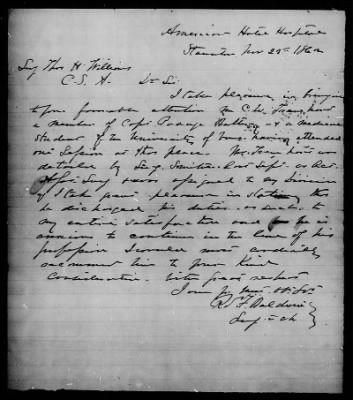 American Hotel Hospital
Staunton Nov 29th 1862
Surg Thos H Williams
C. S. A. Dr Sir
I take pleasure in bringing
to your favorable attention Mr C. W.
a member of Capt Battery & a medical
student of the University of having attended
one Session at this place Mr was
detailed by Surg. as Act
Surg & was assigned to my Division
I take great pleasure in stating that
he discharged his duties in such
my entire satisfaction and he is
anxious to continue in the line of his
profession I would most cordially
recommend him to your Kind
Consideration. With great respect
I am yr
R. F. Baldwin
Surg in ch